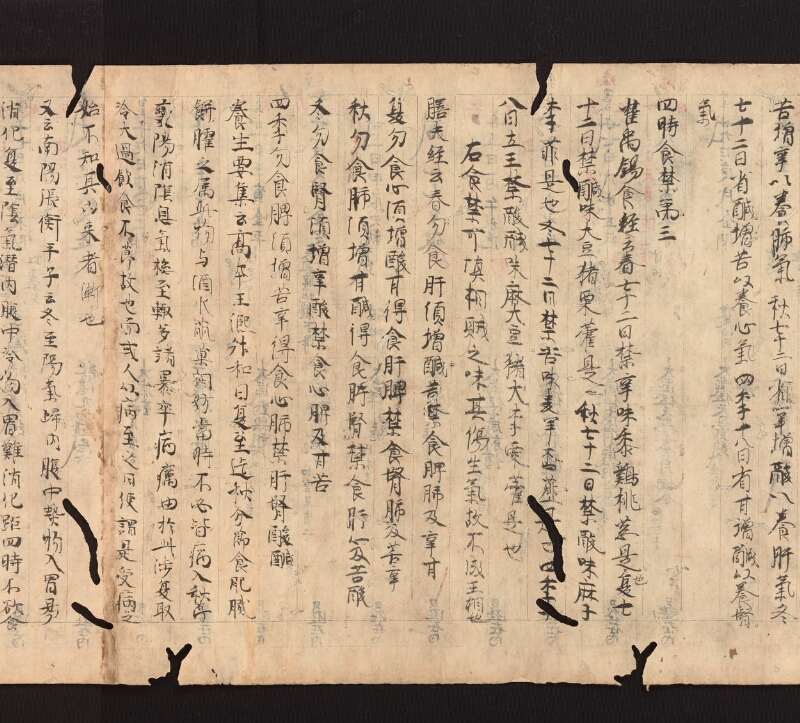 苦増辛以養肺氣 秋七十二日省辛増酸以養肝氣冬
七十二日省鹹増苦以養心氣四季十八日省甘増鹹以養腎
氣
四時食禁第三
崔禹錫食経云春七十二日禁辛味黍鷄桃葱是也夏七
十二日禁鹹味大豆猪栗藿是也秋七十二日禁酸味麻子
李菲是也冬七十二日禁苦味麦羊杏薤是也四季
八日立三禁酸鹹味麻大豆猪犬李栗藿是也
右食禁可慎相賊之味其傷生氣故不成王相也
膳夫経云春勿食肝須増鹹苦禁食脾肺及辛甘
夏勿食心須増酸甘得食肝脾禁食腎肺及苦辛
秋勿食肺須増甘鹹得食脾腎禁食肝心及苦酸
冬勿食腎須増辛酸禁食心脾及甘苦
四季勿食脾須増苦辛得食心肺禁肝腎酸鹹
養生要集云高平王熙叔和曰夏至迄秋分節食肥膩
餅臛之属此物与酒水瓜菓相妨當時不必皆病入秋
変陽消陰息氣惣至輒多諸暴卒病癘由於此渉夏取
冷大過飲食不節故也而或人以病至之日便謂是受病之
始不知其所由来者漸也
又云南陽張衡平子云冬至陽氣帰内腹中熱物入胃易
消化夏至陰氣潜内腹中冷物入胃難消化距四時不欲食